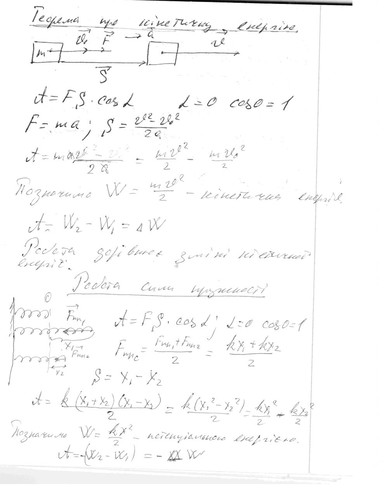 Теорема про кінетичну енергію.
m v₀ F a v
S
A = F S · cos α α = 0 cos 0 = 1
F = ma ; S = (v² − v₀²)/2a
A = ma (v² − v₀²)/2a = mv²/2 − mv₀²/2
Позначимо W = mv²/2 – кінетична енергія
A = W₂ − W₁ = ΔW
Робота дорівнює зміні кінетичної
енергії.
Робота сили пружності
0
Fпр₁
x₁
Fпр₂
x₂
A = F S · cos α ; α = 0 cos 0 = 1
Fпр = (Fпр₁ + Fпр₂)/2 = (kx₁ + kx₂)/2
S = x₁ − x₂
A = k(x₁ + x₂)(x₁ − x₂)/2 = k(x₁² − x₂²)/2 = kx₁²/2 − kx₂²/2
Позначимо W = kx²/2 – потенціальною енергією.
A = −(W₂ − W₁) = − W